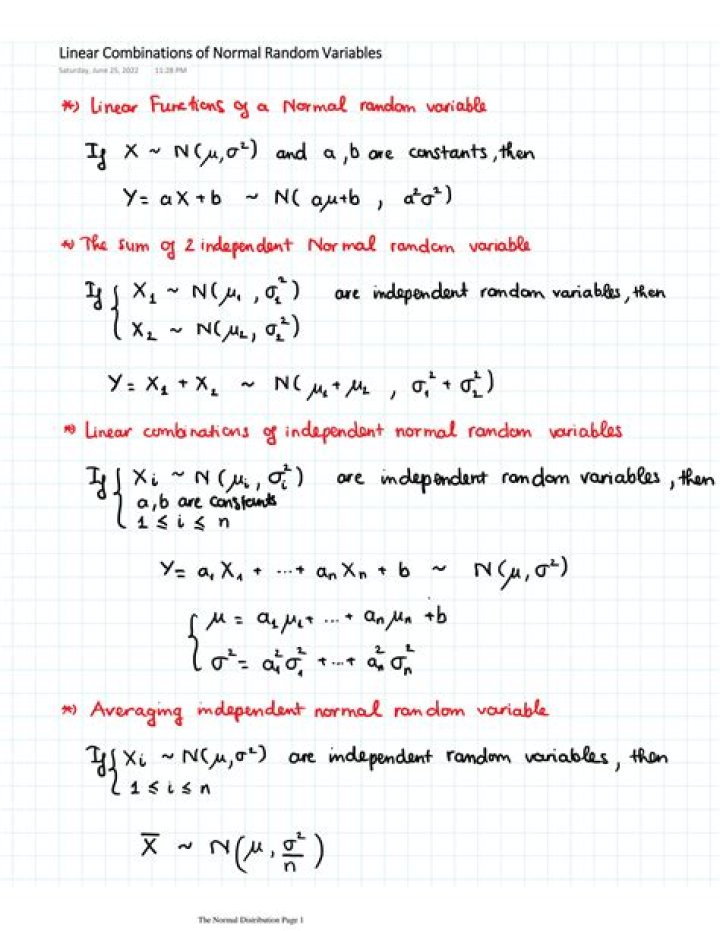 Linear Combinations of Normal Random Variables
Saturday, June 25, 2022 11:28 PM
*) Linear Functions of a Normal random variable
If X ~ N(μ,σ²) and a,b are constants, then
Y= aX+b ~ N( aμ+b , a²σ²)
*) The sum of 2 independent Normal random variable
If { X₁ ~ N(μ₁ , σ₁²) are independent random variables, then
X₂ ~ N(μ₂, σ₂²)
Y= X₁ + X₂ ~ N( μ₁+ μ₂ , σ₁² + σ₂²)
*) Linear combinations of independent normal random variables
If { Xi ~ N(μᵢ, σᵢ²) are independent random variables, then
a,b are constants
1 ≤ i ≤ n
Y= a₁X₁ + ...+ anXn + b ~ N(μ,σ²)
{ μ = a₁μ₁+ ... + anμn +b
σ²= a₁²σ₁² +...+ an²σn²
*) Averaging independent normal random variable
If { Xi ~ N(μ,σ²) are independent random variables, then
1 ≤ i ≤ n
X̄ ~ N(μ, σ²/n)
The Normal Distribution Page 1